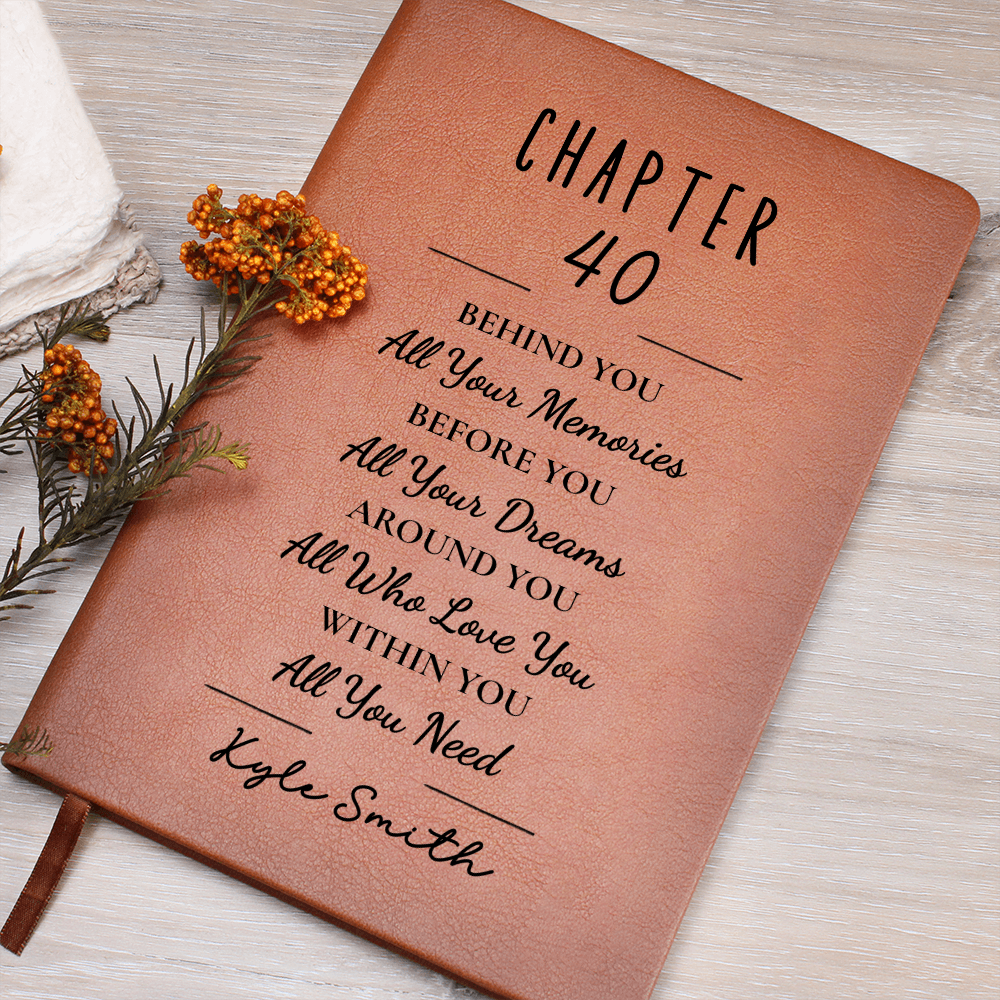 CHAPTER
40
BEHIND YOU
All Your Memories
BEFORE YOU
All Your Dreams
AROUND YOU
All Who Love You
WITHIN YOU
All You Need
Kyle Smith